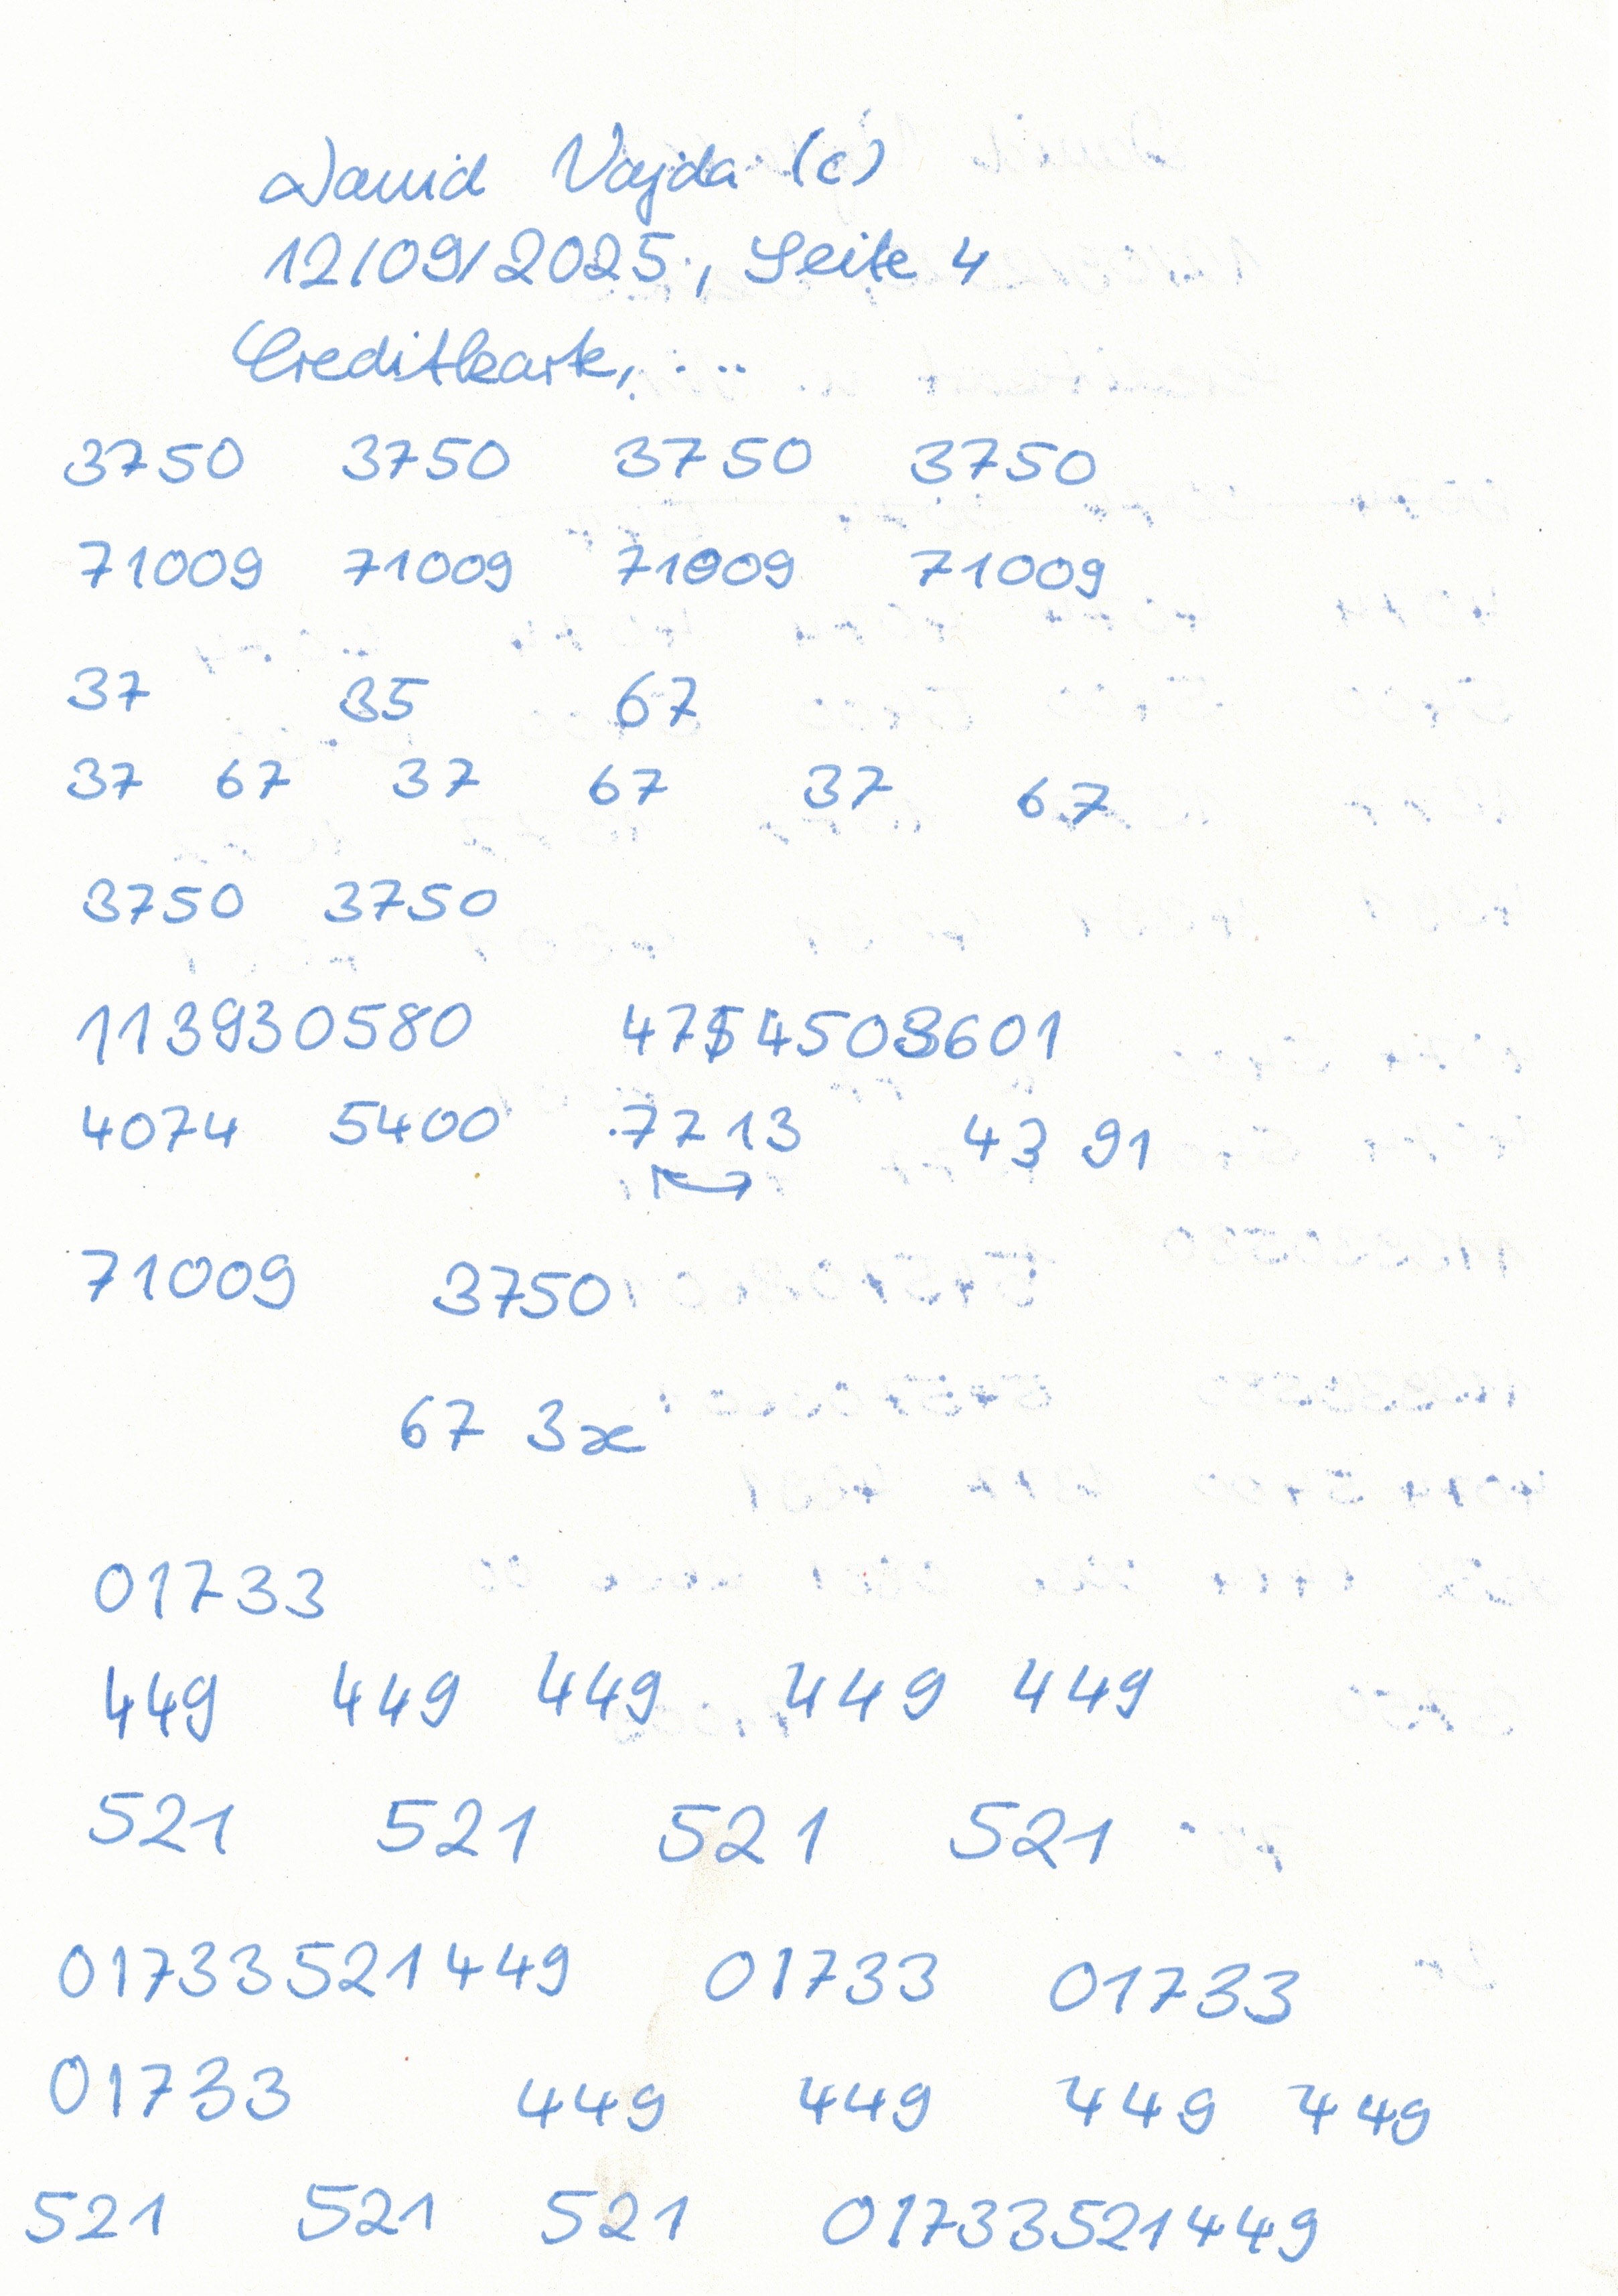 David Vajda (c)
12/09/2025, Seite 4
Creditkarte, ...
3750 3750 3750 3750
71009 71009 71009 71009
37 35 67
37 67 37 67 37 67
3750 3750
113930580
4074 5400 7213 43 91
71009 3750
67 3x
01733
449 449 449 449 449
521 521 521 521
01733521449 01733 01733
01733 449 449 449 449
521 521 521 01733521449